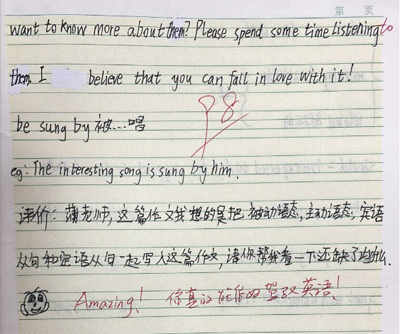 第 页
want to know more about them? Please spend some time listening to
them. I believe that you can fall in love with it!
be sung by 被...唱
98
eg: The interesting song is sung by him.
评价: 蒲老师, 这篇作文我想的是把被动语态, 主动语态, 宾语
从句和定语从句一起写入这篇作文, 请你帮我看一下还缺了点什么.
Amazing! 你真的能很好驾驭英语!